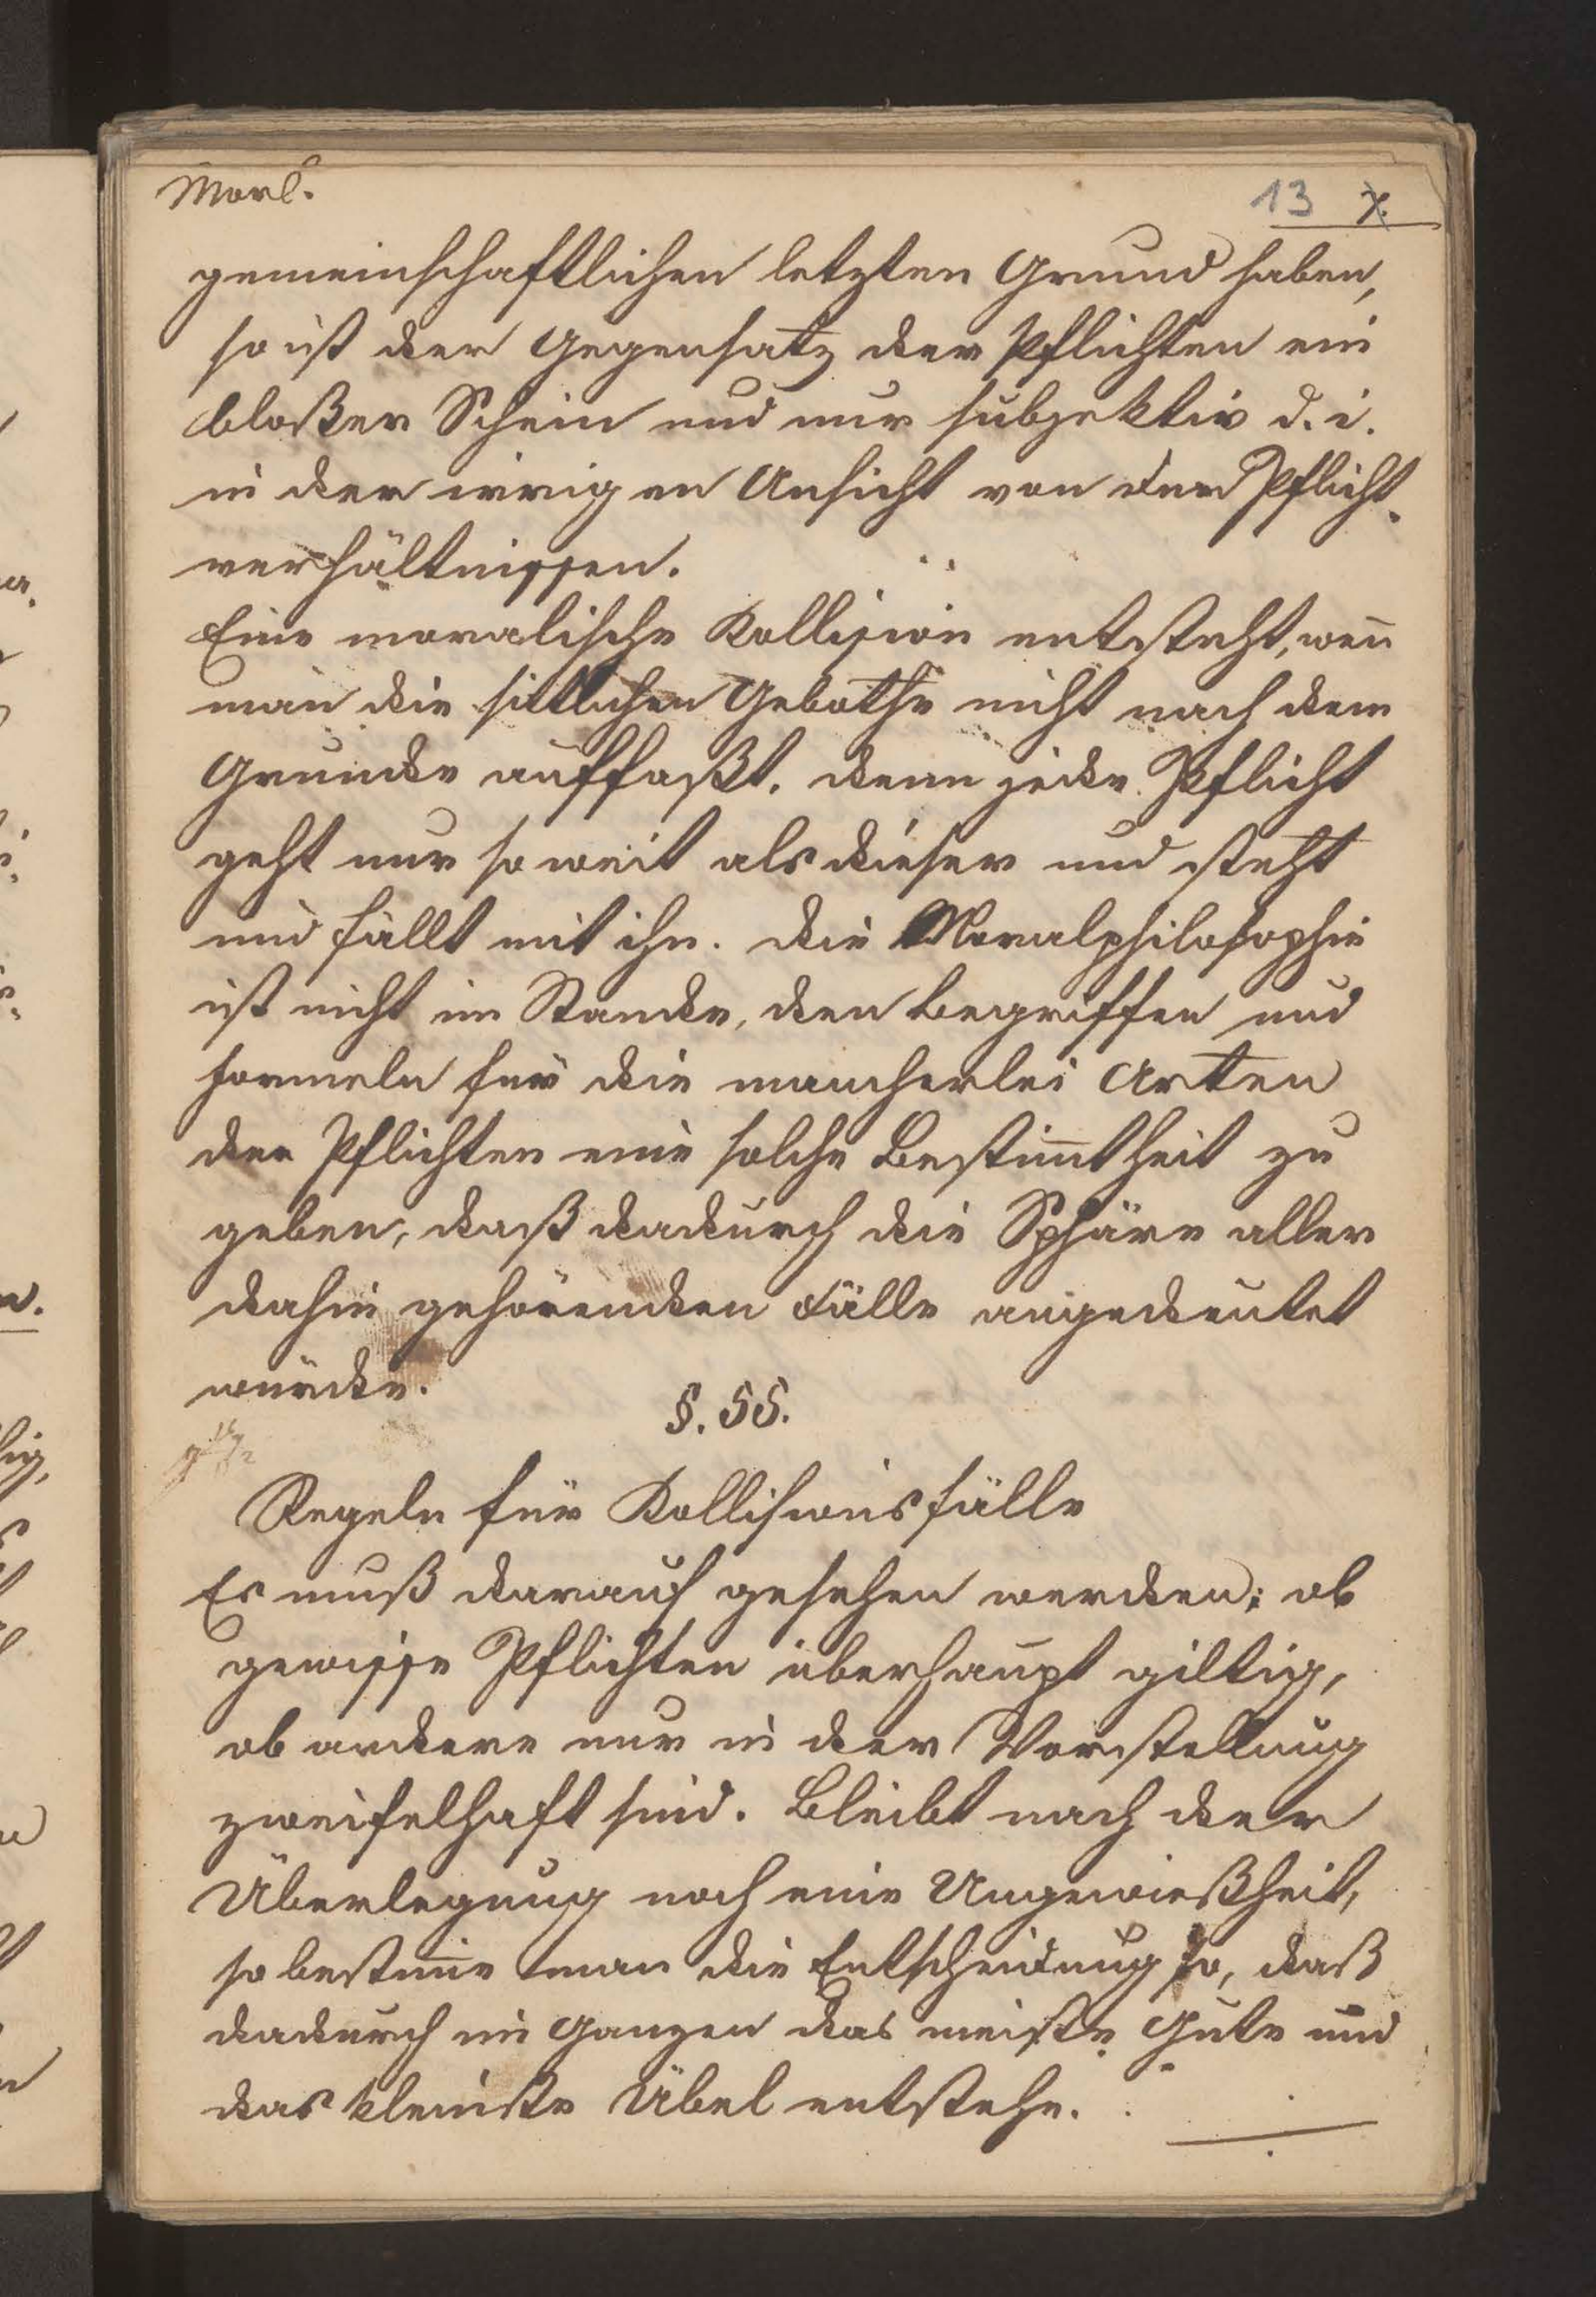 Morl.
13 7.
gemeinschaftlichen letzten Grund haben,
so ist der Gegensatz der Pflichten ein
bloßer Schein und nur subjektiv d. i.
in der irrigen Ansicht von den Pflicht-
verhältnissen.
Eine moralische Kollision entsteht, weñ
man die sittlichen Gebothe nicht nach dem
Grunde auffaßt. denn jede Pflicht
geht nur so weit als dieser und steht
und fällt mit ihr. die Moralphilosophie
ist nicht im Stande, den Begriffen und
Formeln für die mancherlei Arten
der Pflichten eine solche Bestim̃theit zu
geben, daß dadurch die Sphäre aller
dahin gehörenden Fälle angedeutet
würde.
§. 55.
Regeln für Kollisionsfälle
Es muß darauf gesehen werden; ob
gewisse Pflichten überhaupt giltig,
ob andere nur in der Vorstellung
zweifelhaft sind. Bleibt nach der
Überlegung noch eine Ungewißheit,
so bestim̃e man die Entscheidung so, daß
dadurch im Ganzen das meiste Gute und
das kleinste Übel entstehe.